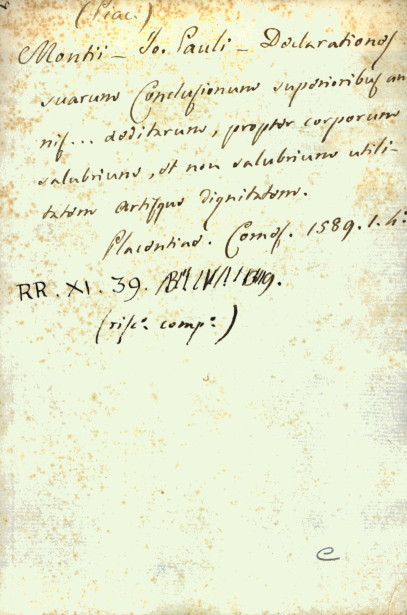 (Piac.)
Montii - Jo. Pauli - Declarationes
suarum Conclusionum superioribus an
nis... deditarum, propter corporum
salubrium, et non salubrium utili-
tatem artisque dignitatem.
Placentiae. Comes. 1589. 1. 4.°
RR. XI. 39.
(risc.° comp.°)
e